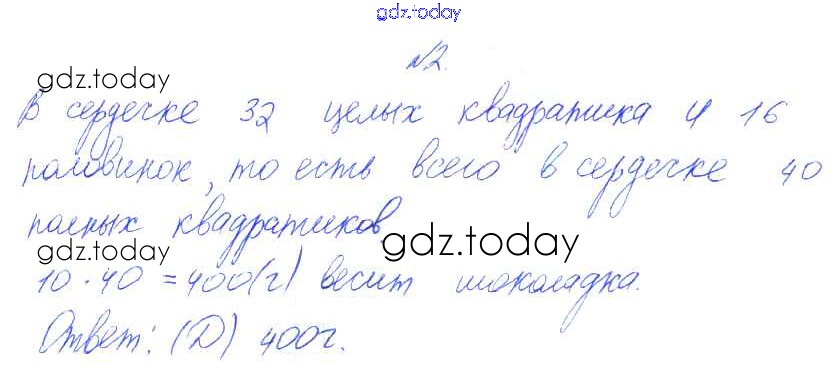 gdz.today
№2.
gdz.today
В сердечке 32 целых квадратика и 16
половинок, то есть всего в сердечке 40
полных квадратиков
gdz.today
gdz.today
10 · 40 = 400 (г) весит шоколадка.
Ответ: (D) 400г.